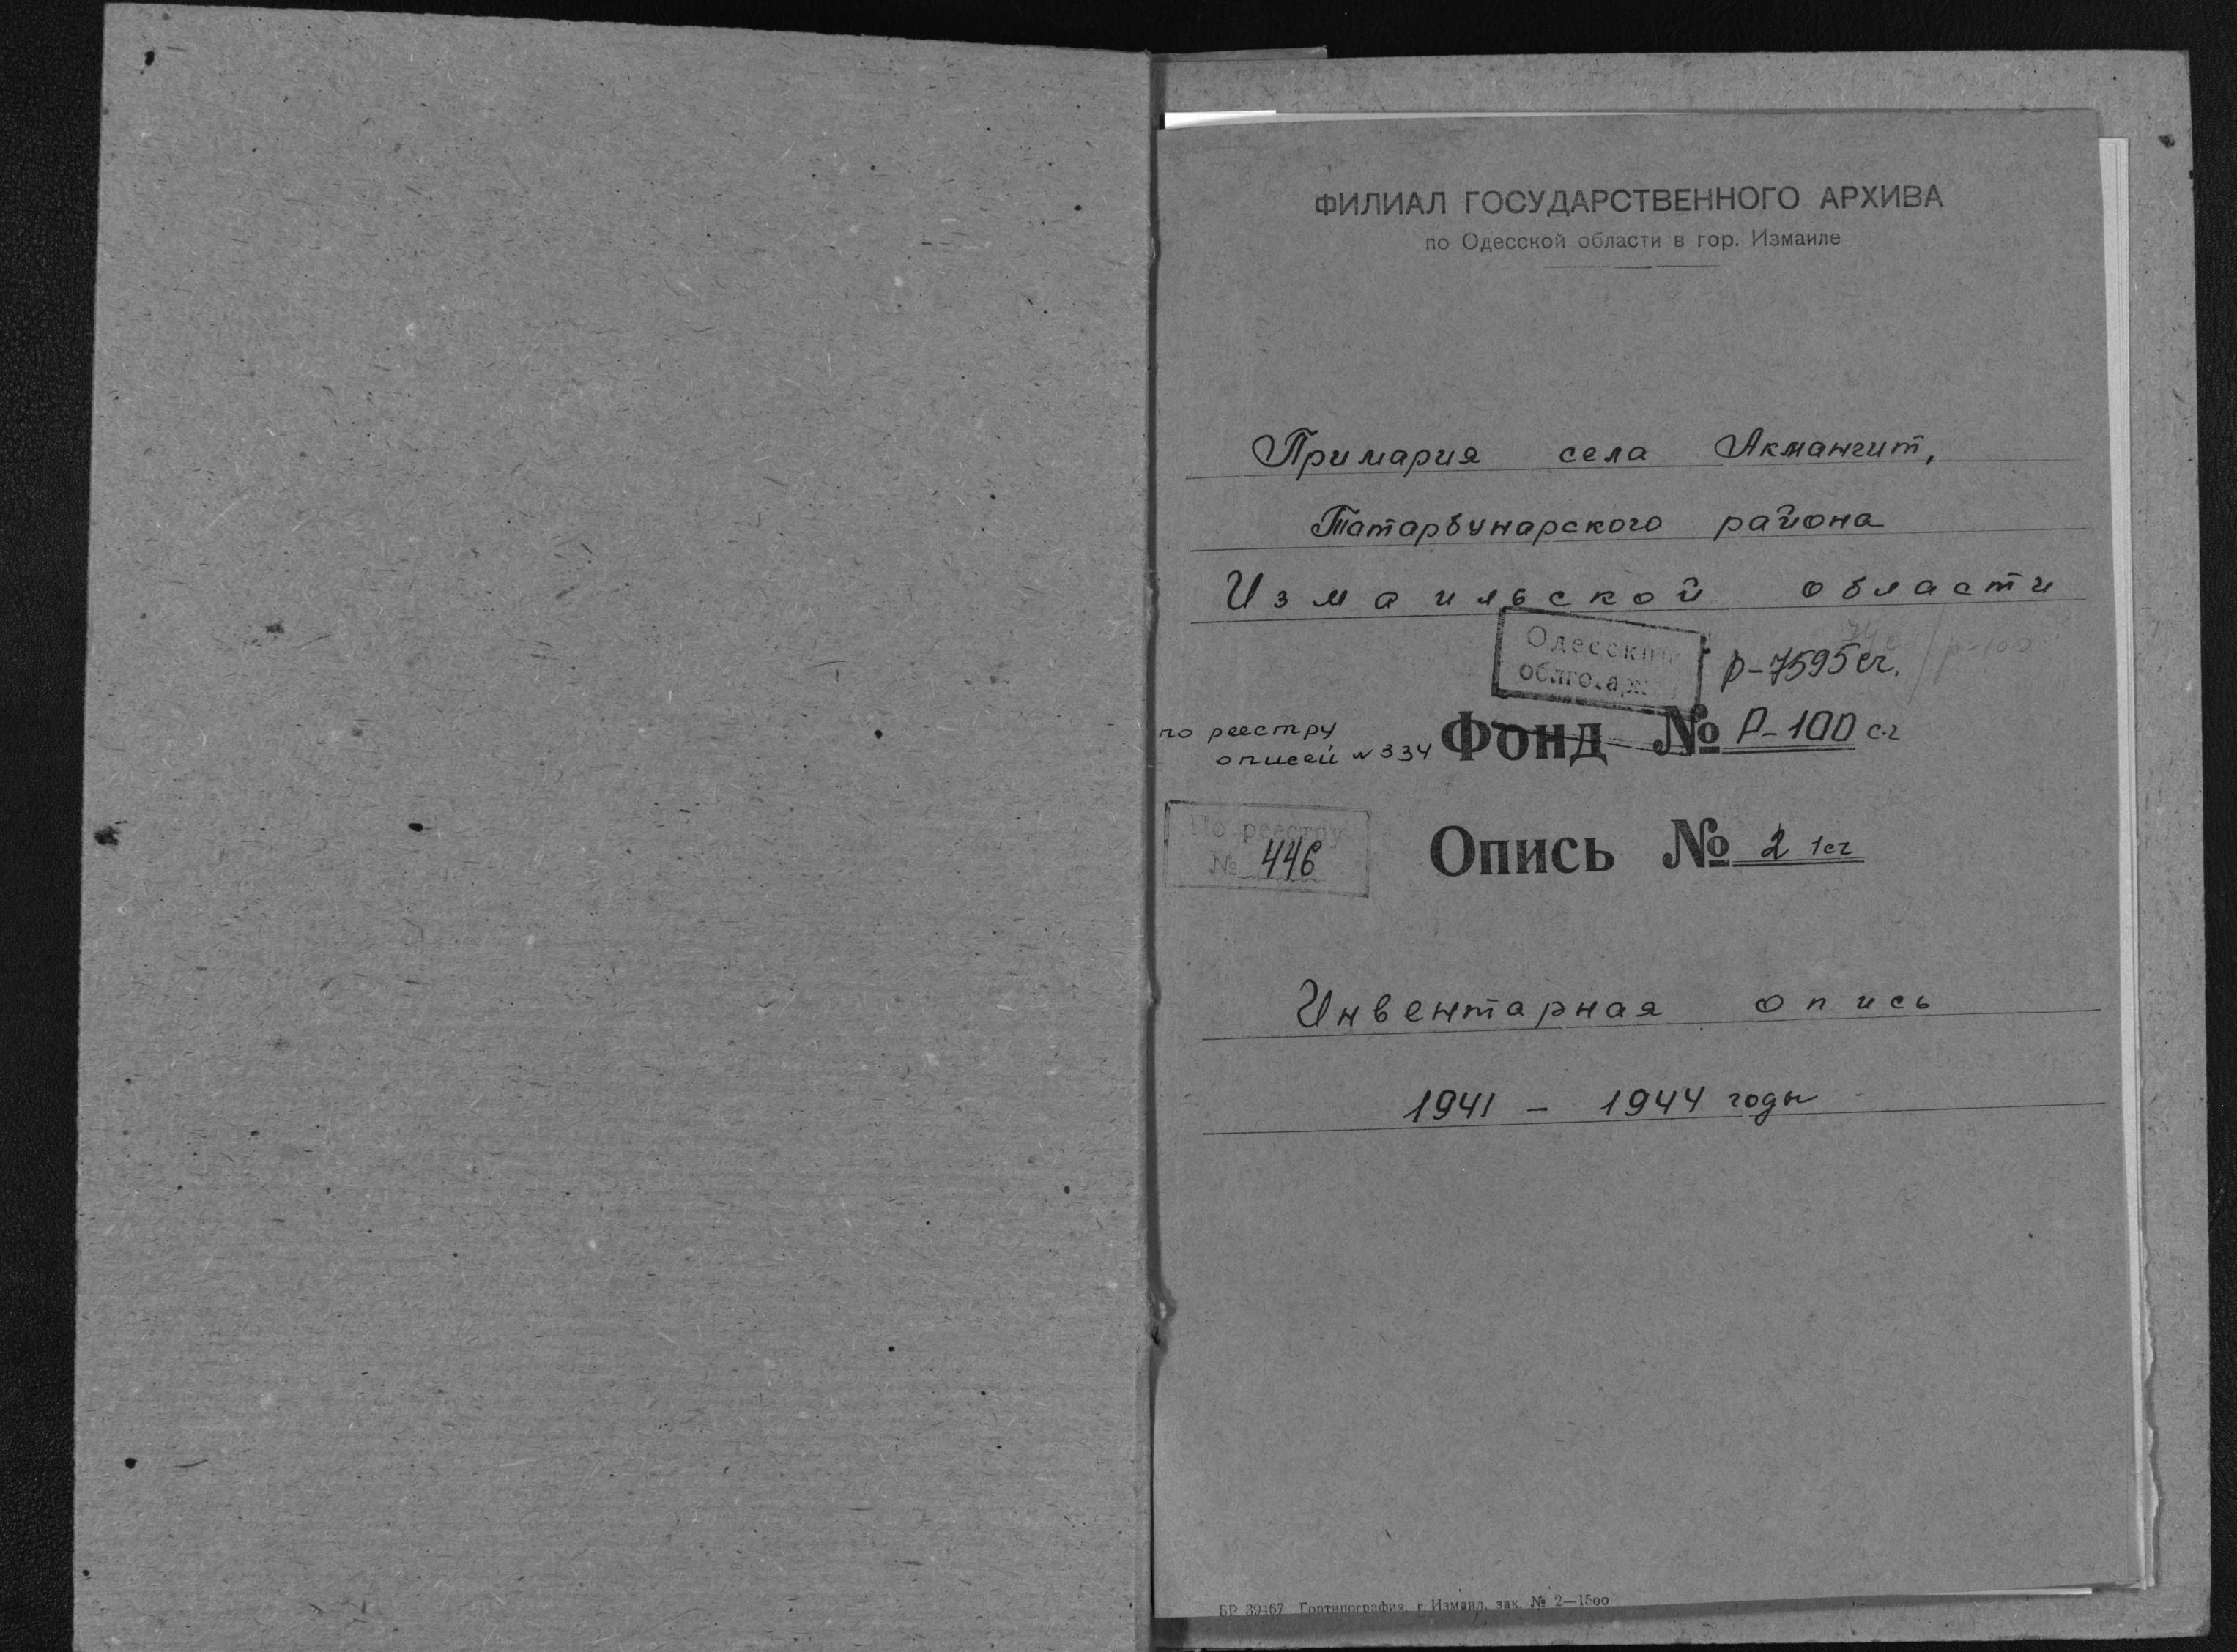 ФИЛИАЛ ГОСУДАРСТВЕННОГО АРХИВА
по Одесской области в гор. Измаиле
Примария села Акмангит,
Татарбунарского района
Измаильской области
Одесский
облгосарх
р-7595сг.
по реестру
описей №334
Фонд № Р-100 сг
По реестру
№ 446
Опись № 2 1сг
Инвентарная опись
1941 - 1944 годы
БР 39467 Гортипография, г. Измаил, зак. № 2—1500